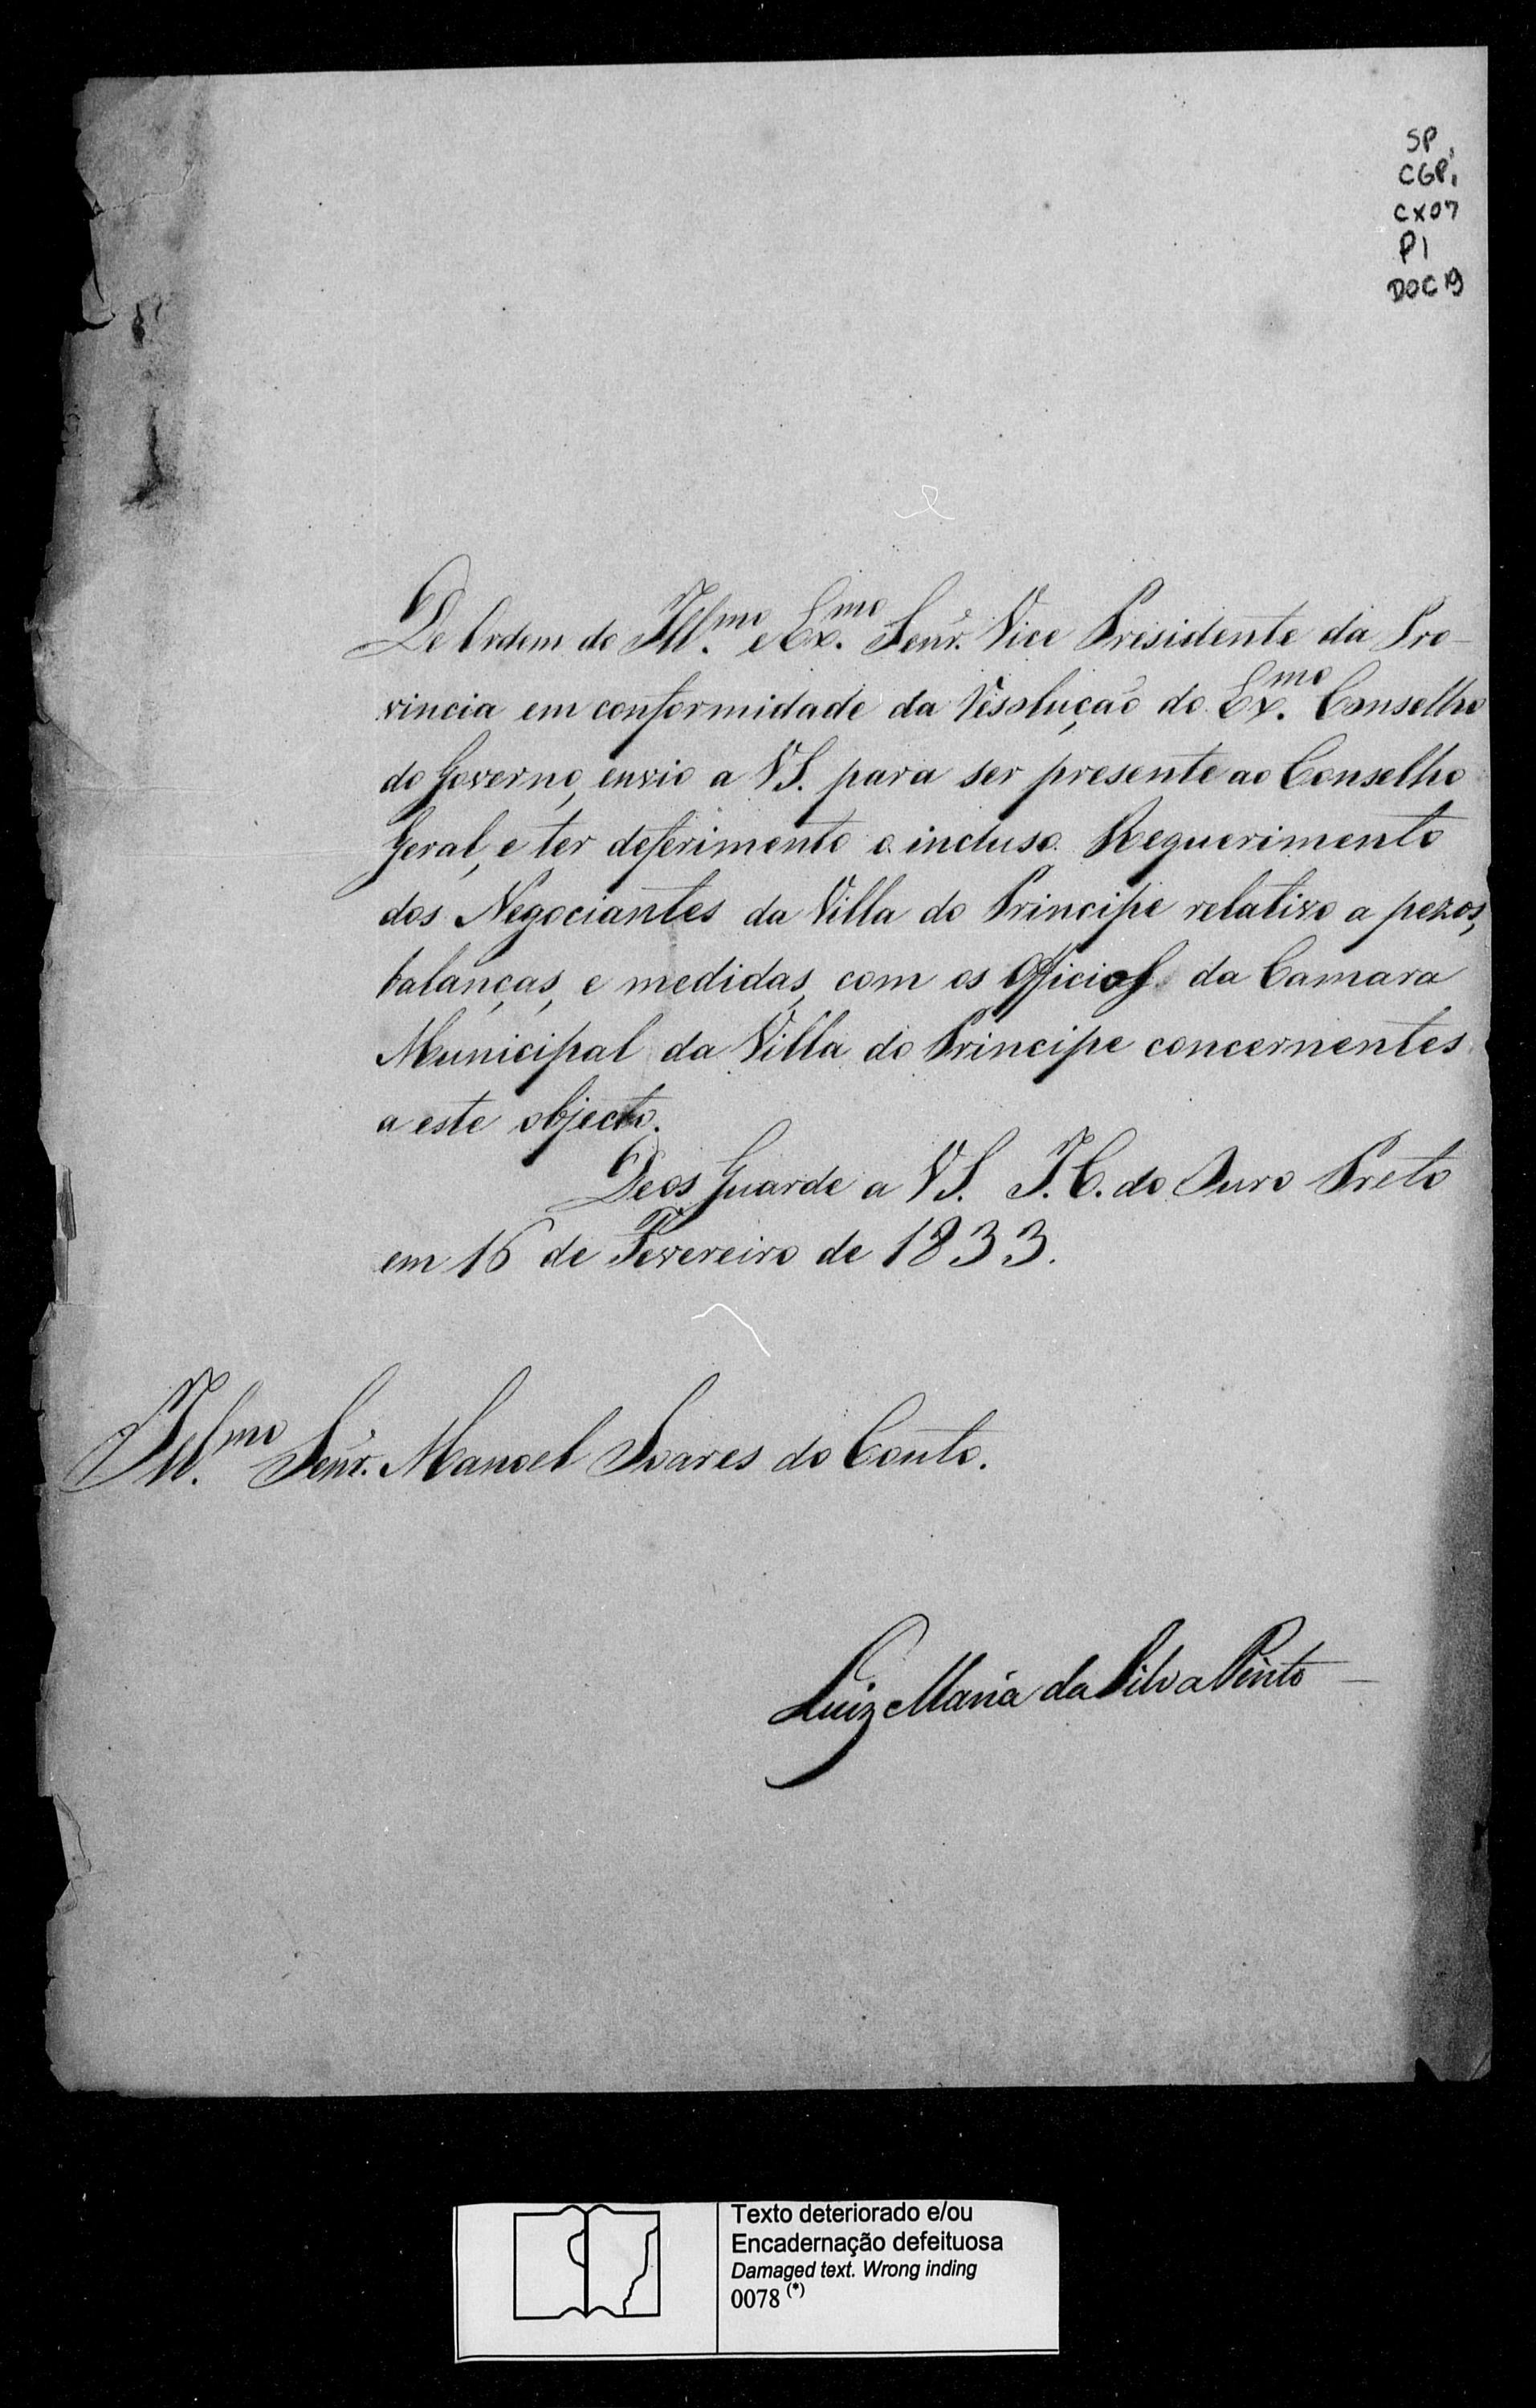 SP,
CGP,
CX07
P1
DOC 19
De Ordem do Ill.mo e Ex.mo Senr. Vice Presidente da Pro-
vincia em conformidade da Resolução do Ex.mo Conselho
do Governo, envio a VS. para ser presente ao Conselho
Geral, e ter deferimento o incluso Requerimento
dos Negociantes da Villa do Principe relativo a pezos,
balanças, e medidas, com os Officios da Camara
Municipal da Villa do Principe concernentes
a este objecto.
Deos Guarde a VS. I.C. do Ouro Preto
em 16 de Fevereiro de 1833.
Ill.mo Senr. Manoel Soares do Couto.
Luiz Maria da Silva Pinto
Texto deteriorado e/ou
Encadernação defeituosa
Damaged text. Wrong inding
0078 (*)